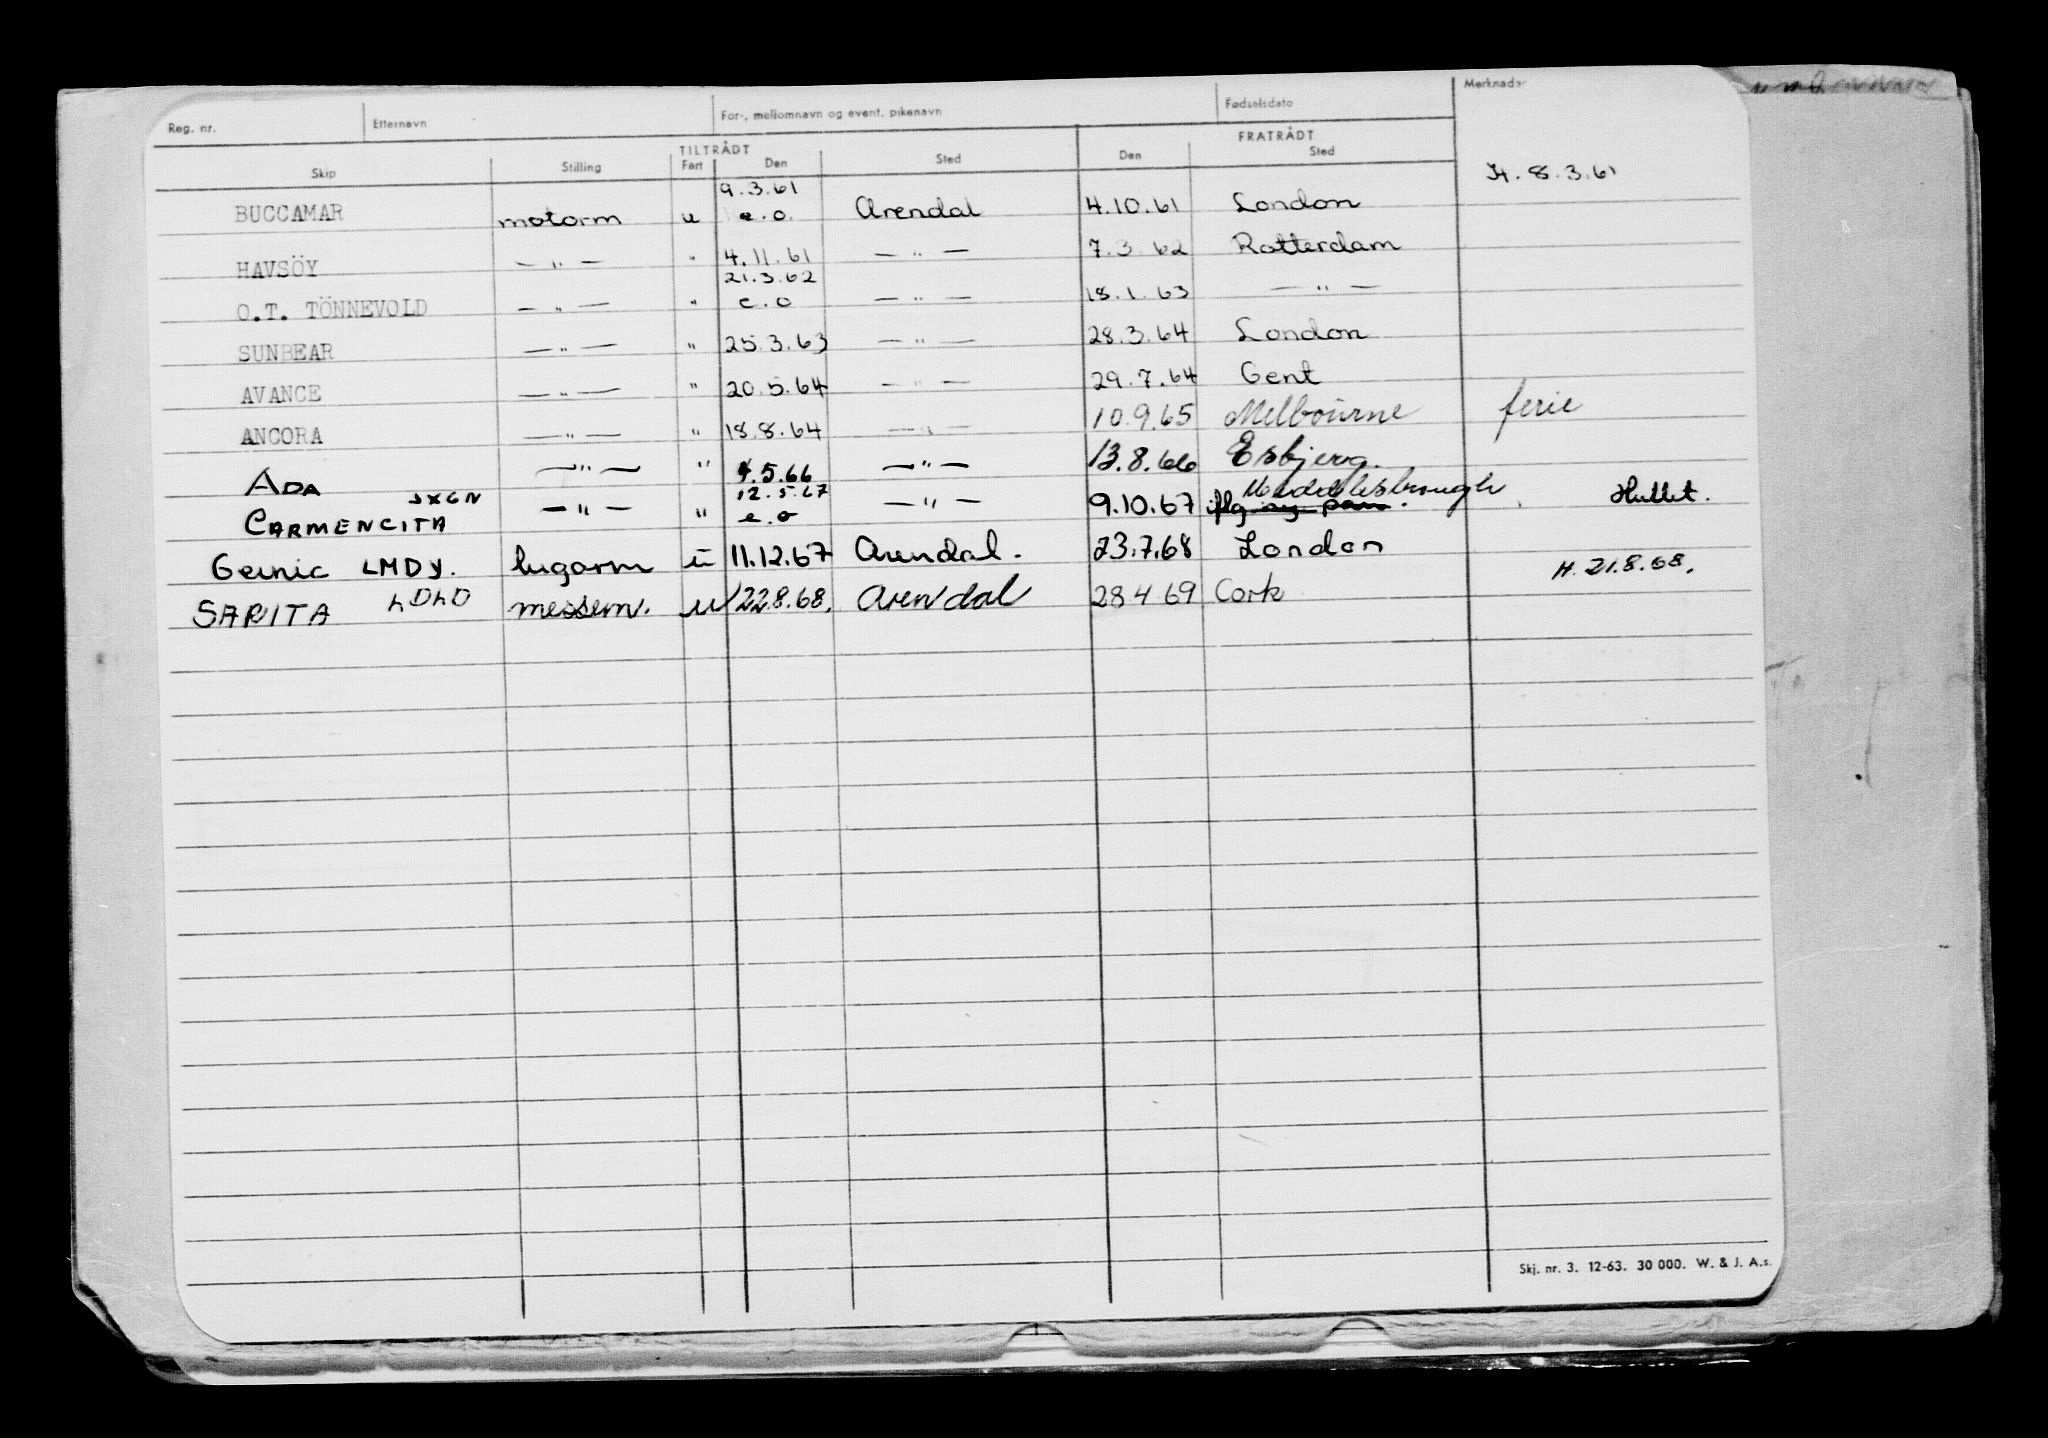 Reg. nr. Etternavn For-, mellomnavn og event. pikenavn Fødselsdato Merknader
TILTRÅDT FRATRÅDT
Skip Stilling Fart Den Sted Den Sted
H. 8.3.61
9.3.61
BUCCAMAR motorm u e.o. Arendal 4.10.61 London
HAVSÖY — " — " 4.11.61 — " — 7.3.62 Rotterdam
21.3.62
O.T. TÖNNEVOLD — " — " e.o — " — 18.1.63 — " —
SUNBEAR — " — " 25.3.63 — " — 28.3.64 London
AVANCE — " — " 20.5.64 — " — 29.7.64 Gent
ANCORA — " — " 18.8.64 — " — 10.9.65 Melbourne ferie
ADA — " — " 4.5.66 — " — 13.8.66 Esbjerg.
JXGN 12.5.67 Middlesbrough
CARMENCITA — " — " e.o — " — 9.10.67 iflg Hullet.
Geinic LMDY. lugarm u 11.12.67 Arendal. 23.7.68 London
H. 21.8.68.
SARITA LDLD messem. u 22.8.68. Arendal 28 4 69 Cork
Skj. nr. 3. 12-63. 30 000. W. & J. A.s.